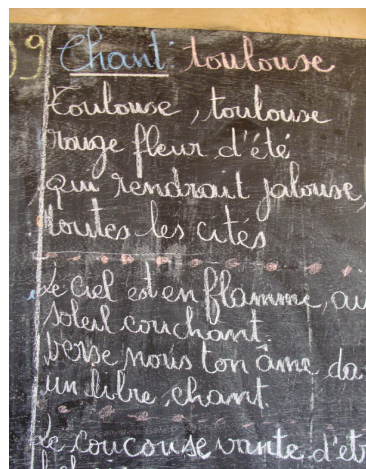 09 Chant: toulouse
toulouse, toulouse
rouge fleur d'été
qui rendrait jalouse,
toutes les cités
Le ciel est en flamme, au
soleil couchant.
verse nous ton âme da
un libre chant.
Le coucou se vante d'êt